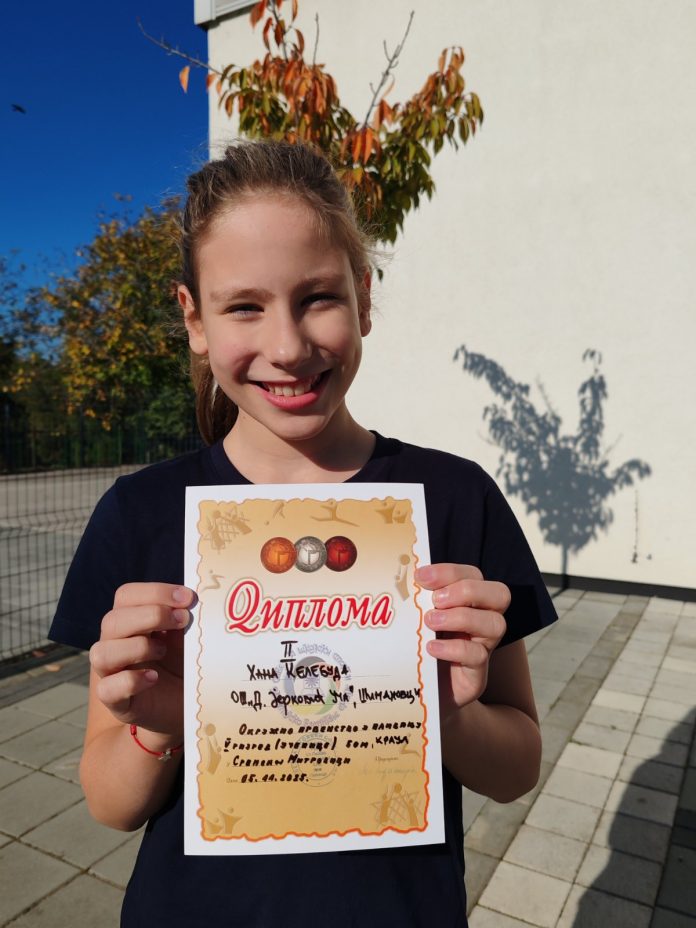 Диплома
II
Хана Келебуда
ОШ „Д. Јерковић Уча", Шимановци
Окружно првенство у пливању
V разред (ученице) 50м, КРАУЛ
Сремска Митровица
05.11.2025.